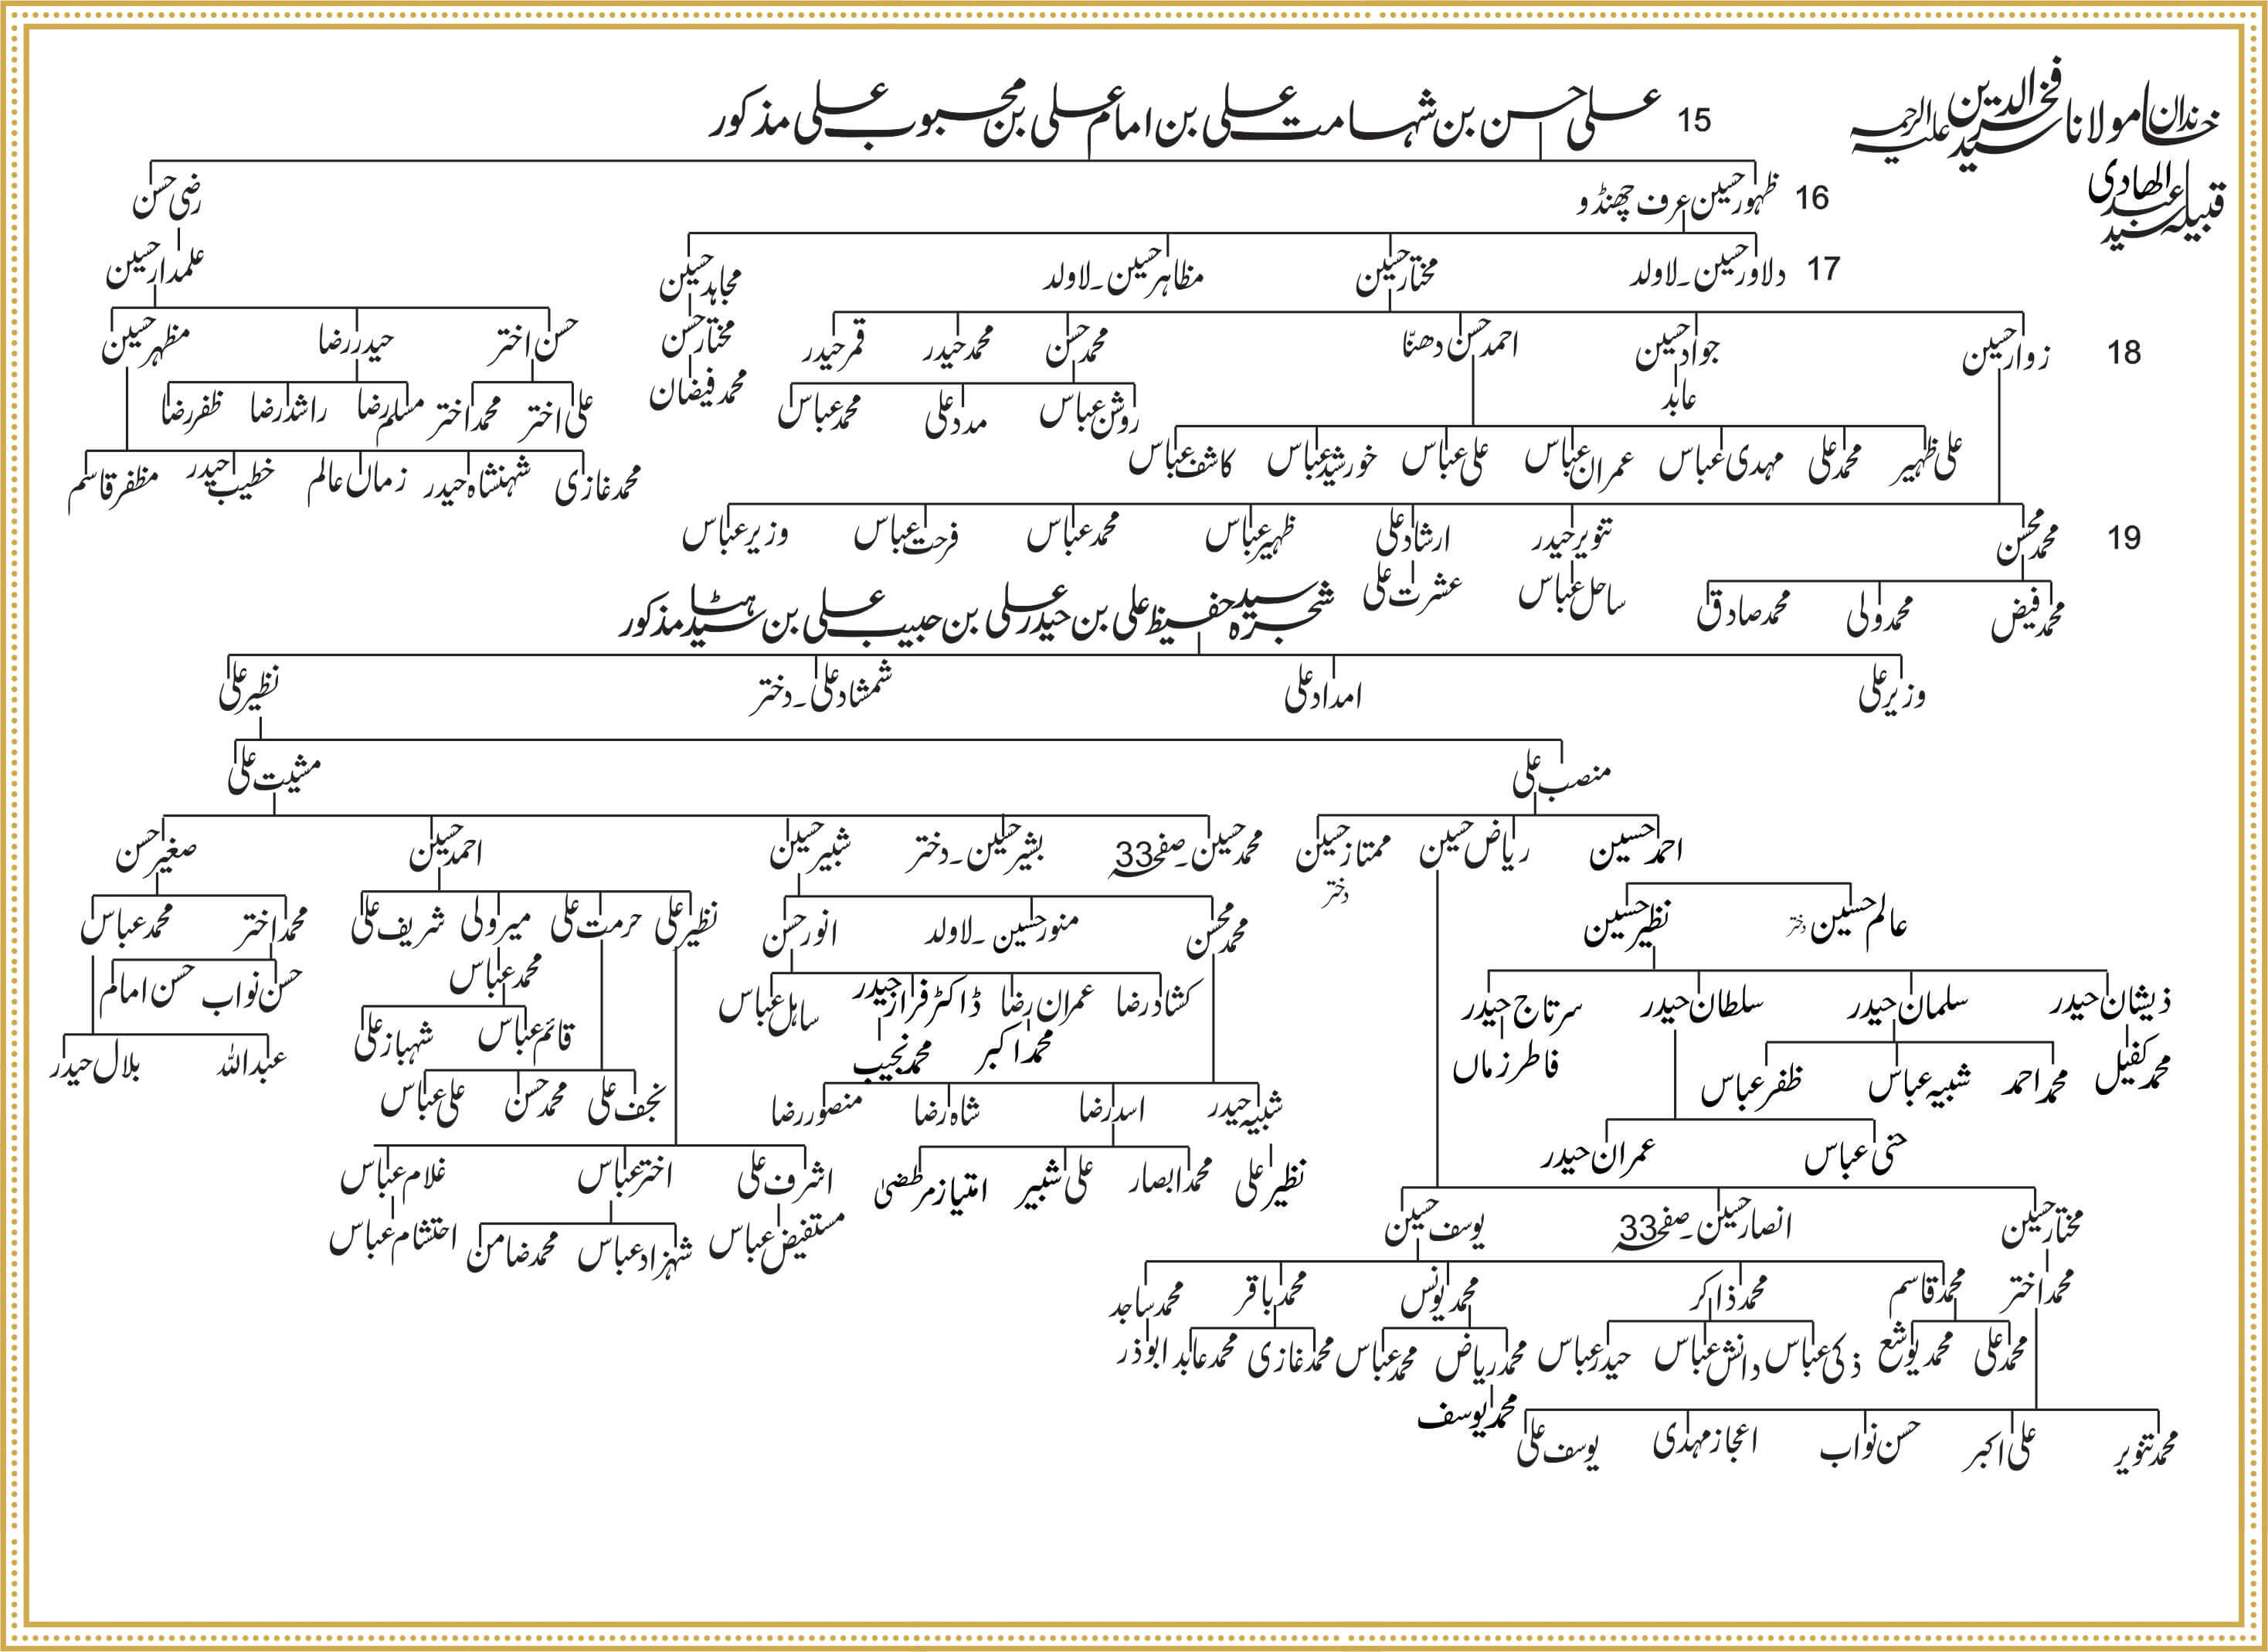 خاندان مولانا سید فخرالدین علیہ الرحمہ
قبیلہ سید عبدالھادی
15 علی حسن بن شہامت علی بن امام علی بن محبوب علی مذکور
16 ظہور حسین عرف جھنڈو رضی حسن
17 دلاور حسین۔لاولد مختار حسین مظاہر حسین۔لاولد مجاہد حسین علمدار حسین
18 زوار حسین جواد حسین احمد حسن دھنّا محمد حسن محمد حیدر قمر حیدر مختار حسن حسن اختر حیدر رضا مظہر حسین
عابد روشن عباس مدد علی محمد عباس محمد فیضان علی اختر محمد اختر مسلم رضا راشد رضا ظفر رضا
علی ظہیر محمد علی مہدی عباس عمران عباس علی عباس خورشید عباس کاشف عباس محمد غازی شہنشاہ حیدر زمال عالم خطیب حیدر مظفر قاسم
19 محمد محسن تنویر حیدر ارشاد علی ظہیر عباس محمد عباس فرحت عباس وزیر عباس
محمد فیض محمد ولی محمد صادق ساحل عباس عشرت علی
شجرہ سید حفیظ علی بن حیدر علی بن حبیب علی بن سید ہٹا مذکور
وزیر علی امداد علی شمشاد علی۔دختر نظیر علی
منصب علی مشیت علی
احمد حسین ریاض حسین ممتاز حسین محمد حسین۔صفحہ 33 بشیر حسین۔دختر شبیر حسین احمد حسین صغیر حسن
دختر
عالم حسین دختر نظیر حسین محمد محسن منور حسین۔لاولد انور حسن نظیر علی حرمت علی میر ولی شریف علی محمد اختر محمد عباس
محمد عباس حسن نواب حسن امام
ذیشان حیدر سلمان حیدر سلطان حیدر سرتاج حیدر کشاد رضا عمران رضا ڈاکٹر فراز حیدر ساہل عباس قائم عباس شہباز علی
محمد کفیل محمد احمد شبیہ عباس ظفر عباس فاطر زماں محمد اکبر محمد نجیب عبداللہ بلال حیدر
شبیہ حیدر اسد رضا شاہ رضا منصور رضا نجف علی محمد حسن علی عباس
حتی عباس عمران حیدر نظیر علی محمد ابصار علی شبیر امتیاز مرطضیٰ اشرف علی اختر عباس غلام عباس
مختار حسین انصار حسین۔صفحہ 33 یوسف حسین مستفیض عباس شہزاد عباس محمد ضامن احتشام عباس
محمد اختر محمد قاسم محمد ذاکر محمد یونس محمد باقر محمد ساجد
محمد علی محمد یوشع ذکی عباس دانش عباس حیدر عباس محمد ریاض محمد عباس محمد غازی محمد عابد ابوذر
محمد یوسف
محمد تنویر علی اکبر حسن نواب اعجاز مہدی یوسف علی